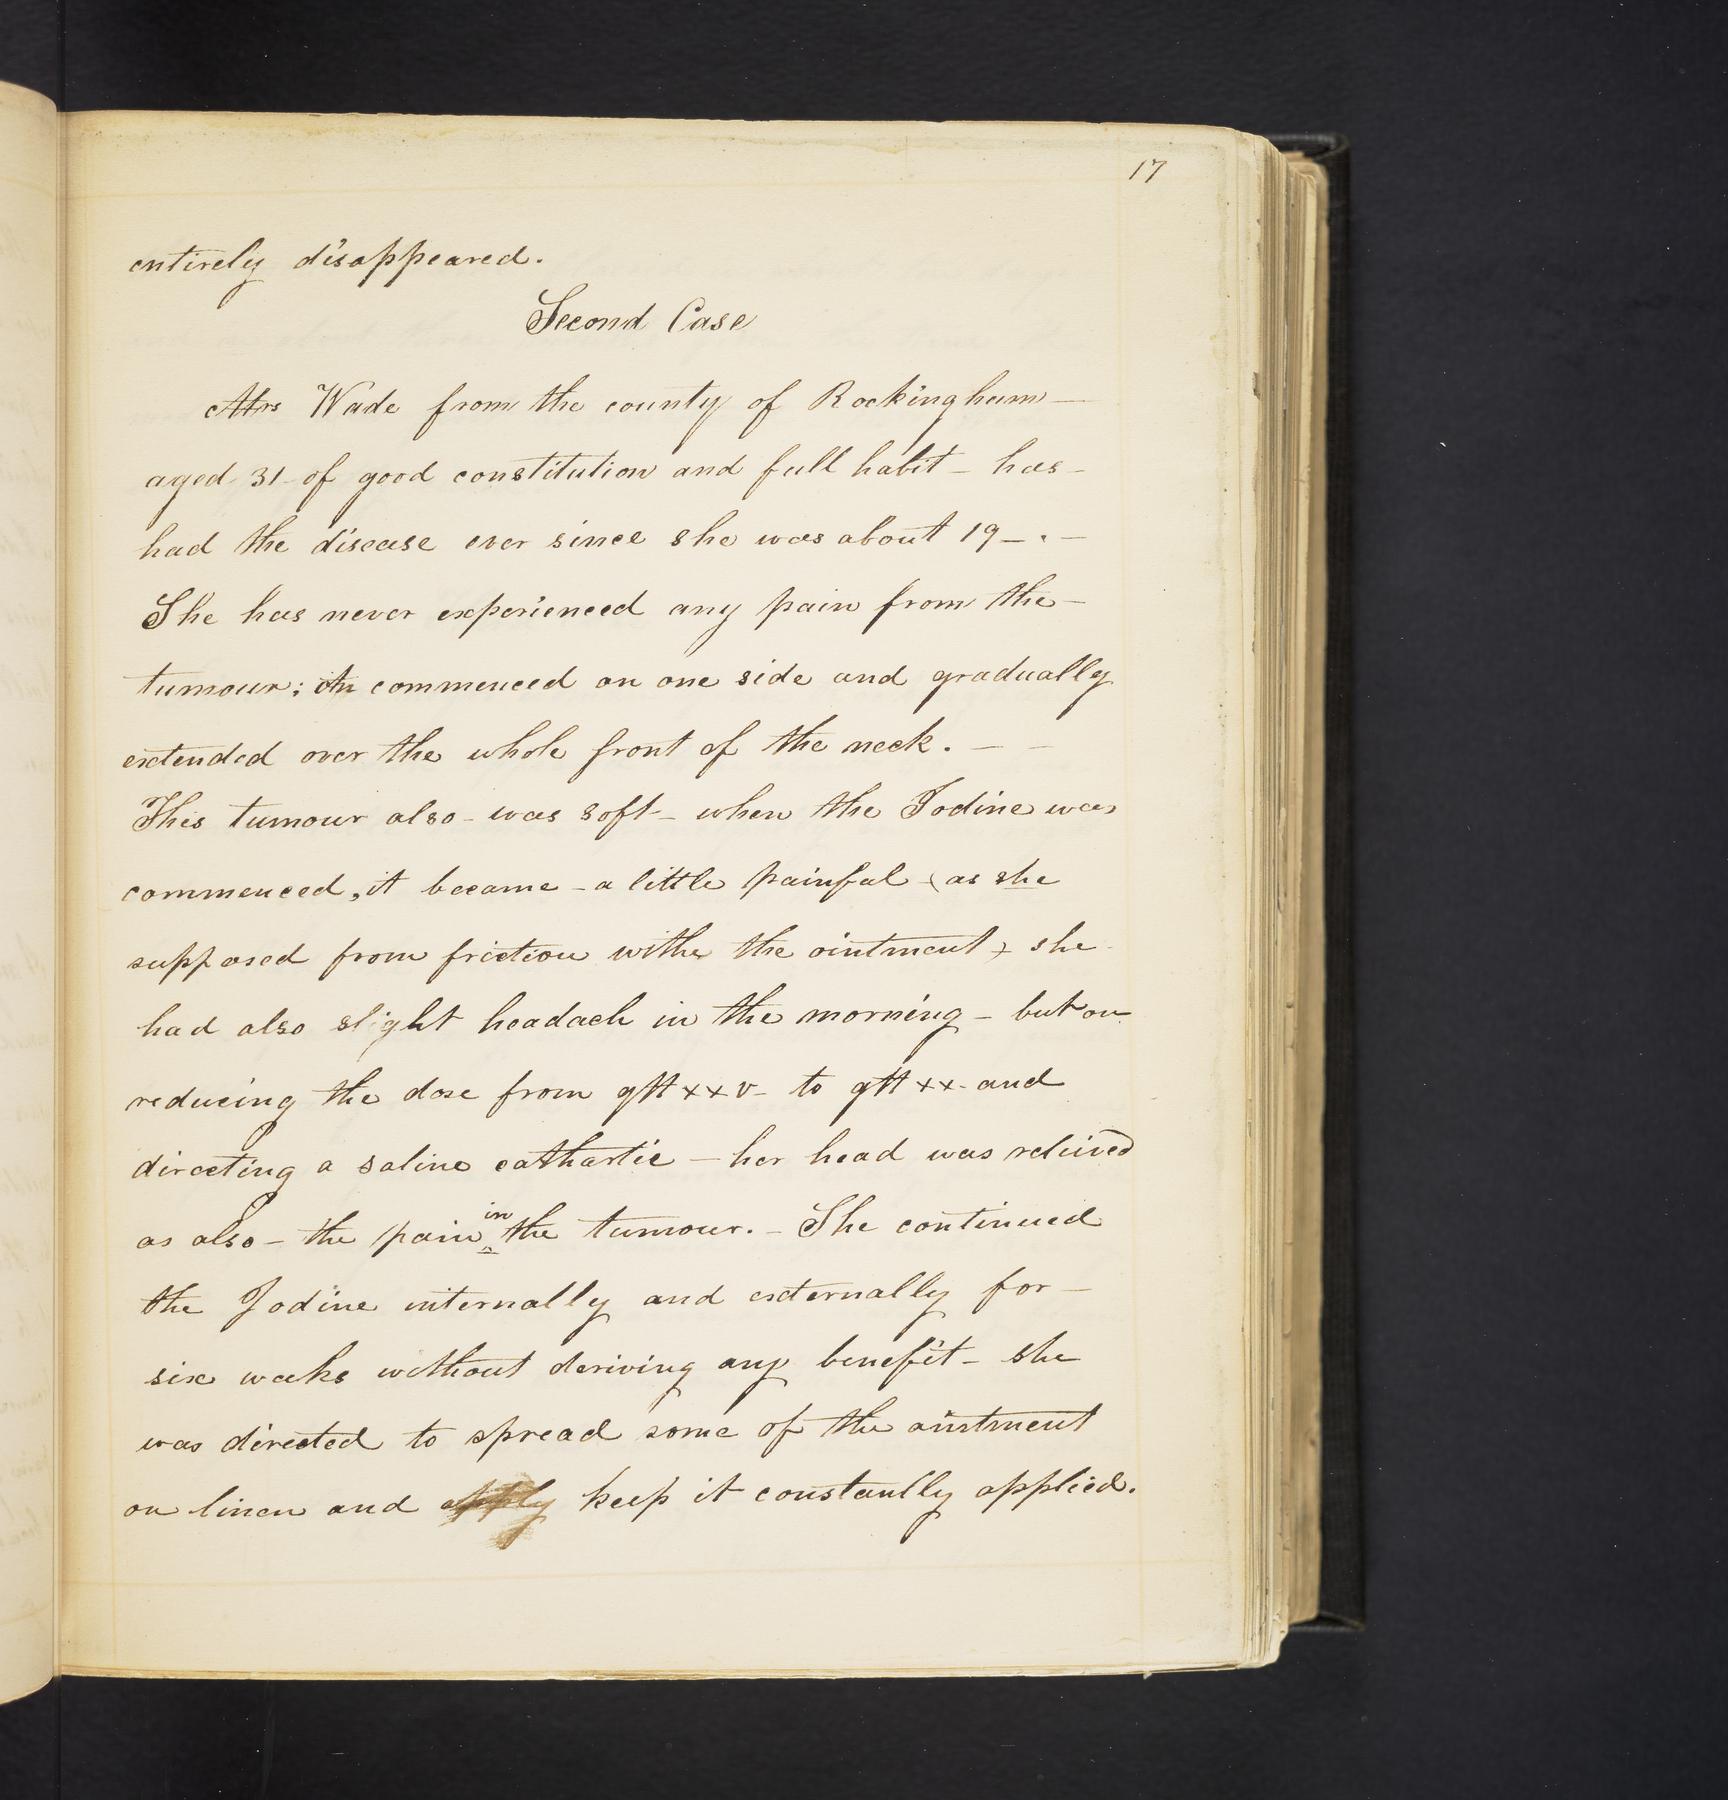 17
entirely disappeared.
Second Case
Mrs Wade from the county of Rockingham —
aged 31 - of good constitution and full habit - has -
had the disease ever since she was about 19 - . -
She has never experienced any pain from the -
tumour; it commenced on one side and gradually
extended over the whole front of the neck. — —
This tumour also - was soft - when the Iodine was
commenced, it became - a little painful - (as she
supposed from friction withe the ointment) she -
had also slight headach in the morning - but on
reducing the dose from gtt xxv - to gtt xx - and
directing a saline cathartic - her head was releived
as also - the pain in the tumour. - She continued
the Iodine internally and externally for -
six weeks without deriving any benefit - she
was directed to spread some of the ointment
on linen and apply keep it constantly applied.